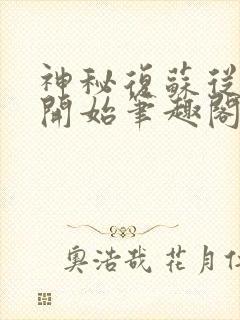 神秘復蘇從
開始筆趣閣
奧浩哉 花月仁